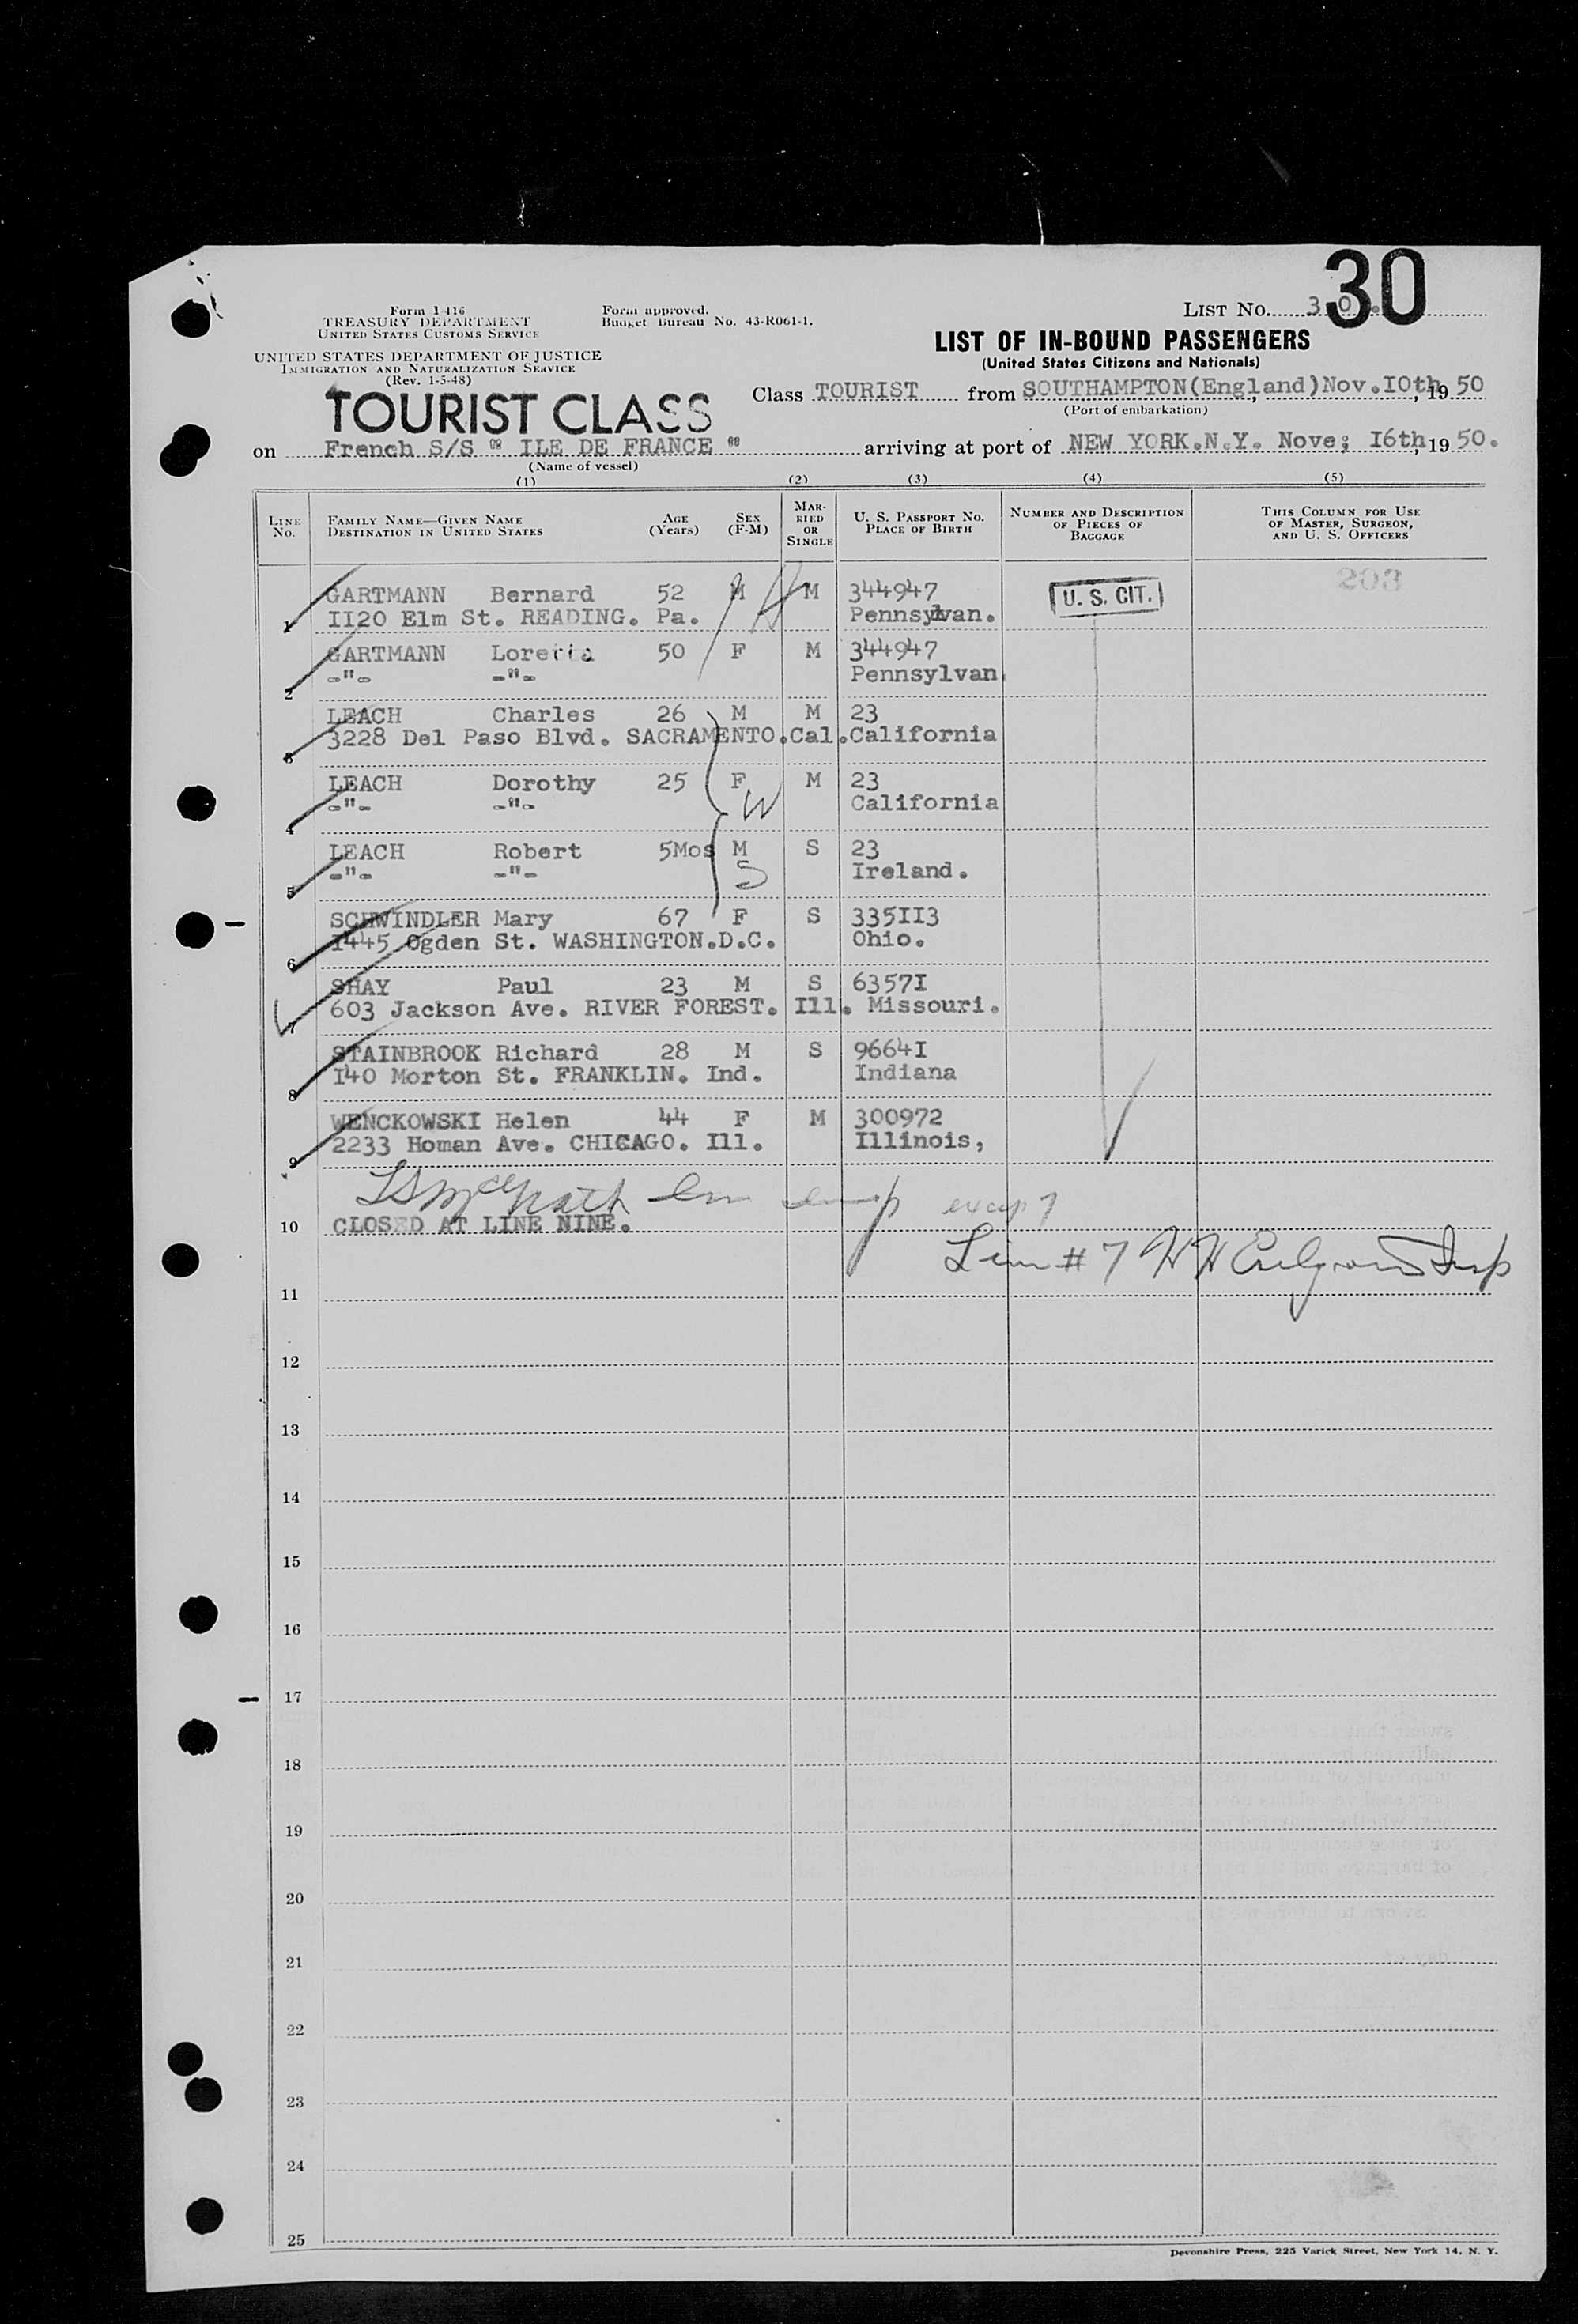 30
Form I-416
TREASURY DEPARTMENT
UNITED STATES CUSTOMS SERVICE
Form approved.
Budget Bureau No. 43-R061-1.
LIST No. 30.
UNITED STATES DEPARTMENT OF JUSTICE
IMMIGRATION AND NATURALIZATION SERVICE
(Rev. 1-5-48)
LIST OF IN-BOUND PASSENGERS
(United States Citizens and Nationals)
TOURIST CLASS
Class TOURIST from SOUTHAMPTON(England)Nov.IOth, 19 50
(Port of embarkation)
on French S/S " ILE DE FRANCE " arriving at port of NEW YORK.N.Y. Nove; I6th, 19 50.
(Name of vessel)
(1) (2) (3) (4) (5)
LINE No. FAMILY NAME—GIVEN NAME DESTINATION IN UNITED STATES AGE (Years) SEX (F-M) MARRIED OR SINGLE U. S. PASSPORT No. PLACE OF BIRTH NUMBER AND DESCRIPTION OF PIECES OF BAGGAGE THIS COLUMN FOR USE OF MASTER, SURGEON, AND U. S. OFFICERS
GARTMANN Bernard 52 M M 344947 U. S. CIT. 203
1 II20 Elm St. READING. Pa. Pennsylvan.
GARTMANN Loretta 50 F M 344947
2 -"- -"- Pennsylvan
LEACH Charles 26 M M 23
3 3228 Del Paso Blvd. SACRAMENTO.Cal.California
LEACH Dorothy 25 F M 23
4 -"- -"- W California
LEACH Robert 5Mos M S 23
5 -"- -"- S Ireland.
SCHWINDLER Mary 67 F S 335II3
6 I445 Ogden St. WASHINGTON.D.C. Ohio.
SHAY Paul 23 M S 6357I
7 603 Jackson Ave. RIVER FOREST. Ill. Missouri.
STAINBROOK Richard 28 M S 9664I
8 I40 Morton St. FRANKLIN. Ind. Indiana
WENCKOWSKI Helen 44 F M 300972
9 2233 Homan Ave. CHICAGO. Ill. Illinois,
10 CLOSED AT LINE NINE.
Line # 7
11
12
13
14
15
16
17
18
19
20
21
22
23
24
25
Devonshire Press, 225 Varick Street, New York 14, N. Y.